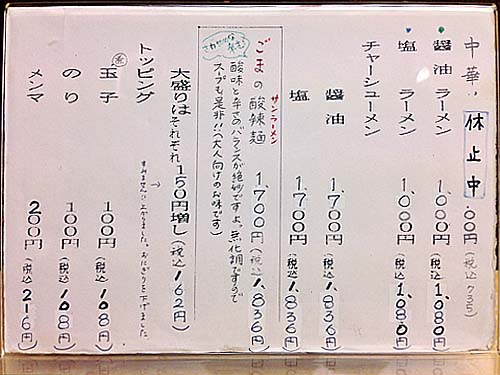 中華 休止中 00円(税込735)
醤油ラーメン 1,000円(税込1,080円)
塩ラーメン 1,000円(税込1,080円)
チャーシューメン
醤油 1,700円(税込1,836円)
塩 1,700円(税込1,836円)
サンラーメン
ごまの酸辣麺 1,700円(税込1,836円)
酸味と辛さのバランスが絶妙ですよ。無化調ですので
スープも是非!!(大人向けのお味です)
大盛りはそれぞれ150円増し(税込162円)
トッピング
すみません!!上がりました。おにぎりを下げました。
玉子 100円(税込108円)
のり 100円(税込108円)
メンマ 200円(税込216円)